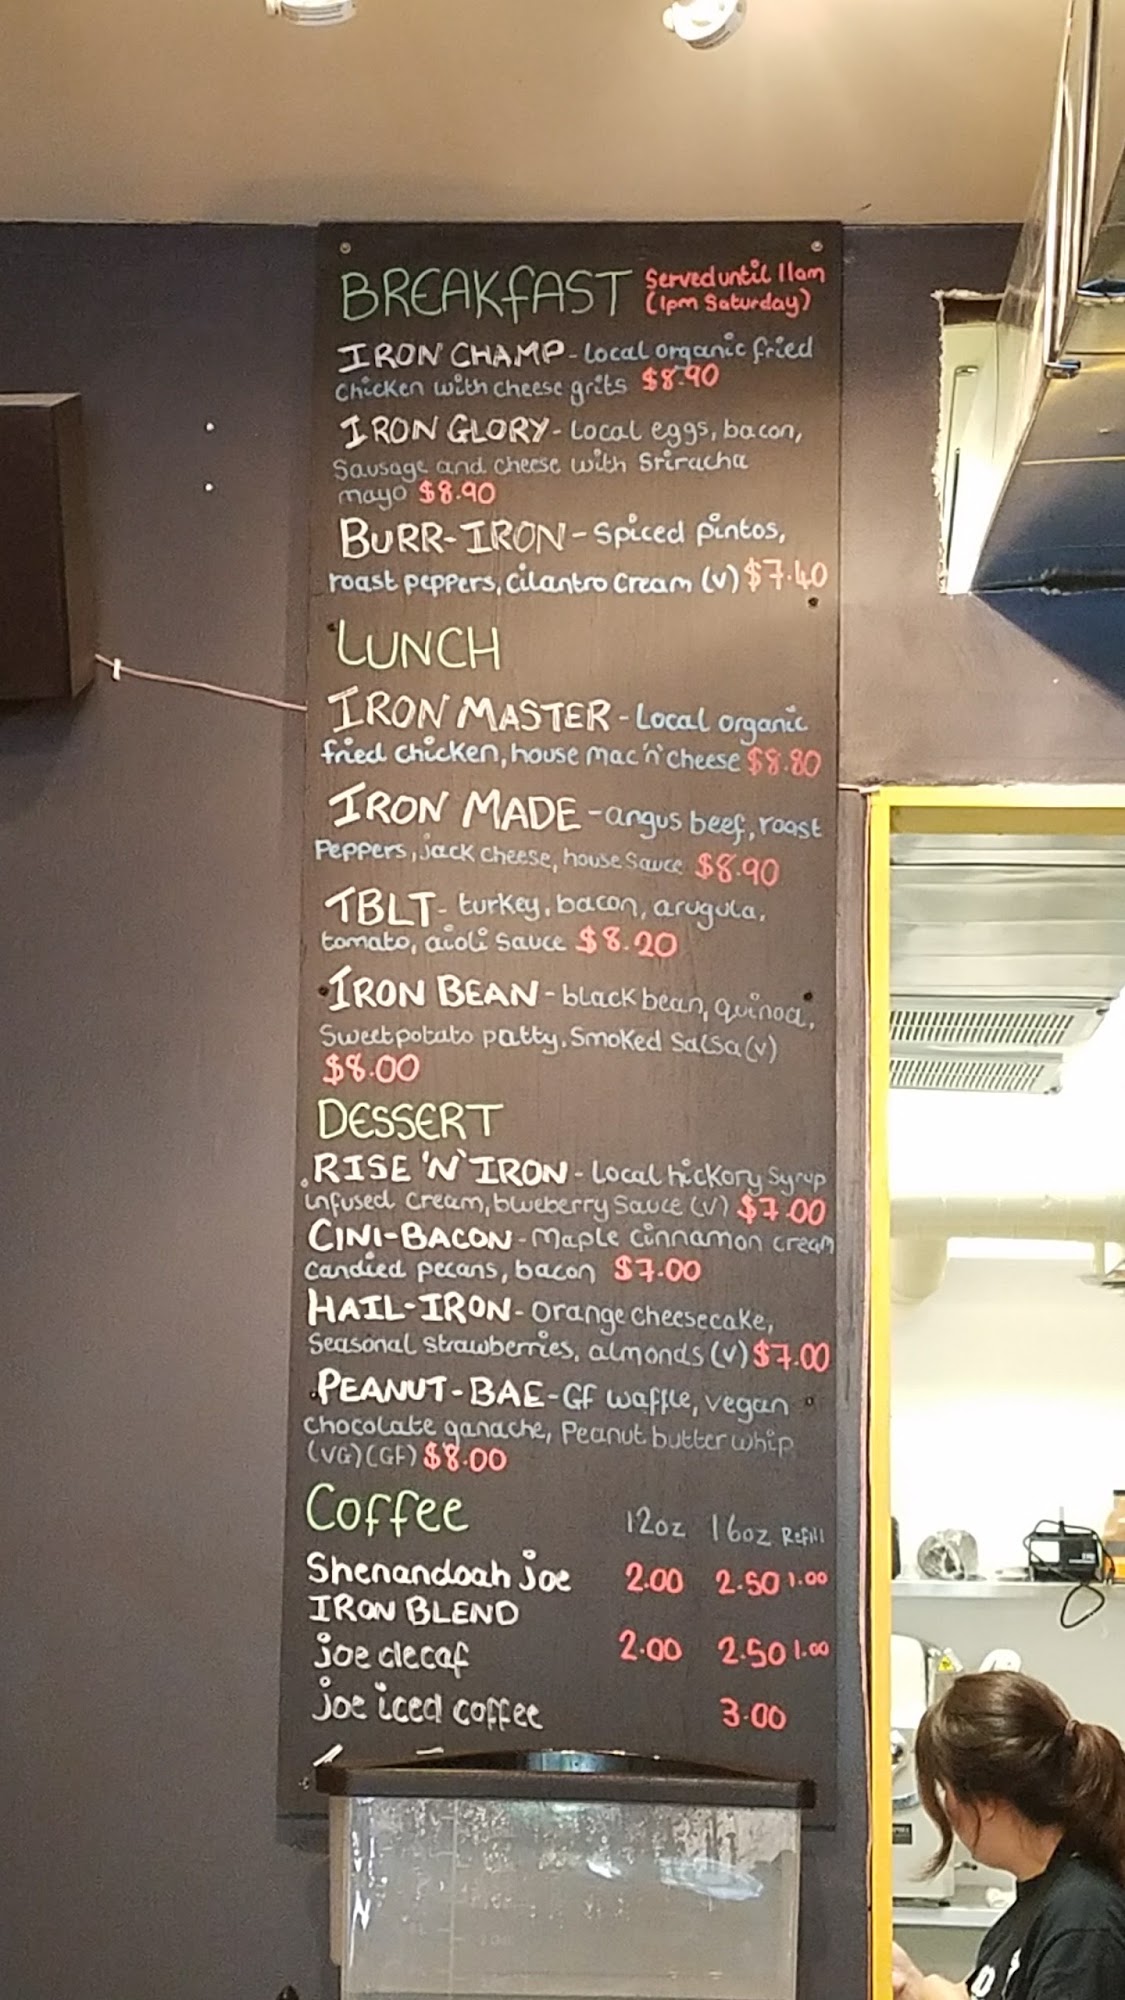 BREAKFAST Served until 11am
(1pm Saturday)
IRON CHAMP - Local organic fried
chicken with cheese grits $8.90
IRON GLORY - Local eggs, bacon,
Sausage and cheese with Sriracha
mayo $8.90
BURR-IRON - Spiced pintos,
roast peppers, cilantro cream (v) $7.40
LUNCH
IRON MASTER - Local organic
fried chicken, house mac'n'cheese $8.80
IRON MADE - angus beef, roast
Peppers, jack cheese, house sauce $8.90
TBLT - turkey, bacon, arugula,
tomato, aioli sauce $8.20
IRON BEAN - black bean, quinoa,
Sweet potato patty. Smoked Salsa (v)
$8.00
DESSERT
RISE 'N' IRON - Local hickory syrup
infused cream, blueberry sauce (v) $7.00
CINI-BACON - Maple cinnamon cream
candied pecans, bacon $7.00
HAIL-IRON - orange cheesecake,
Seasonal strawberries, almonds (v) $7.00
PEANUT-BAE - GF waffle, vegan
chocolate ganache, Peanut butter whip
(VG) (GF) $8.00
Coffee 12oz 16oz Refill
Shenandoah joe 2.00 2.50 1.00
IRON BLEND
joe decaf 2.00 2.50 1.00
joe iced coffee 3.00